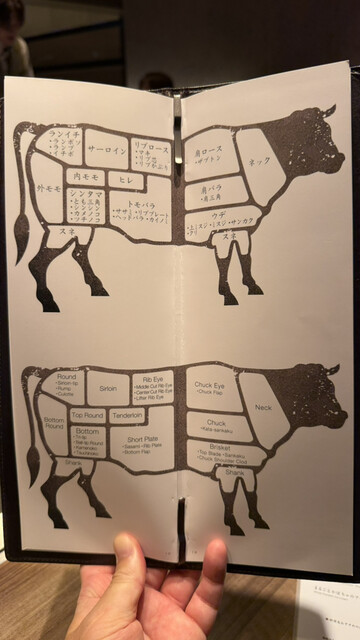 ランイチ
・ランボソ
・ランプ
・イチボ
サーロイン
リブロース
・マキ
・リブ芯
・リブかぶり
肩ロース
・ザブトン
ネック
外モモ
内モモ
ヒレ
シンタマ
・とも三角
・シンシン
・カメノコ
トモバラ
・ササミ・リブプレート
肩バラ
・肩三角
ウデ
スネ
スネ
Round
•Sirloin tip
•Rump
•Culotte
Sirloin
Rib Eye
•Middle Cut Rib Eye
•Center Cut Rib Eye
•Lifter Rib Eye
Chuck Eye
•Chuck Flap
Neck
Bottom
Round
Top Round
Tenderloin
Bottom
•Tri-tip
•Kamenoko
Short Plate
•Sasami •Rib Plate
•Bottom Flap
Chuck
•Kata-sankaku
Brisket
•Top Blade •Sankaku
•Chuck Shoulder Clod
Shank
Shank